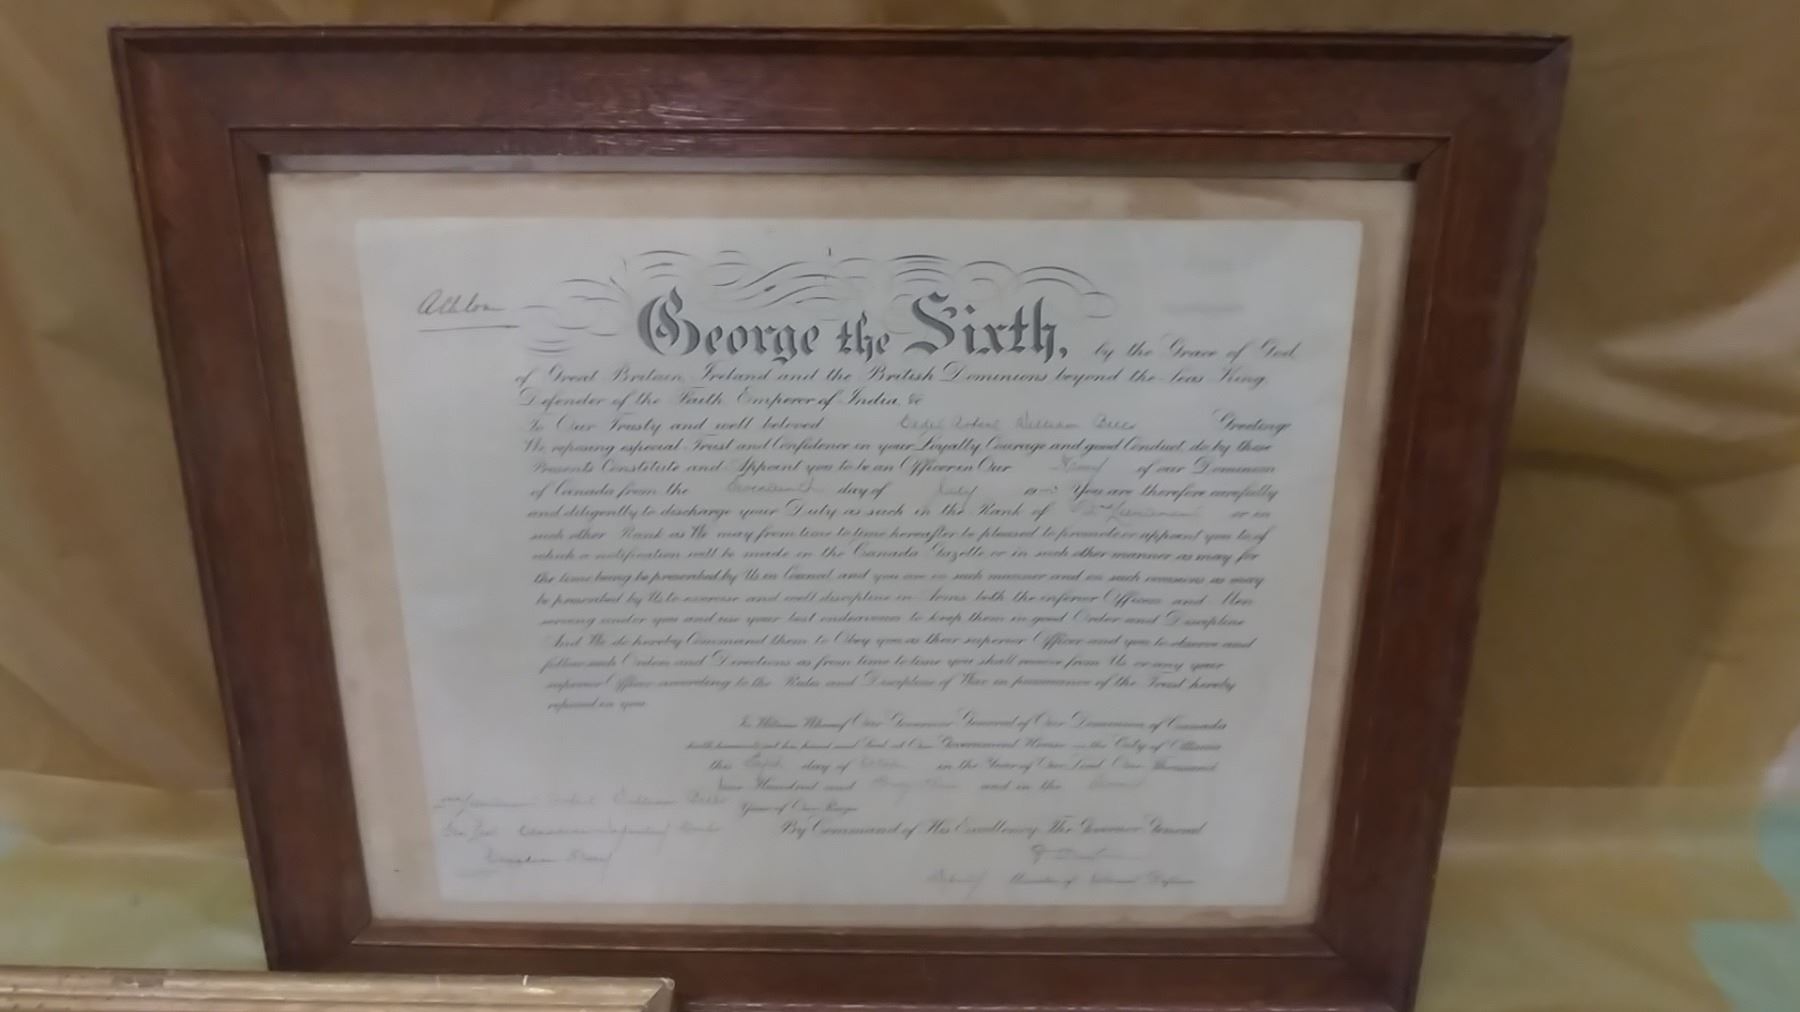 Athlone
George the Sixth, by the Grace of God,
of Great Britain, Ireland and the British Dominions beyond the Seas King,
Defender of the Faith, Emperor of India, &c
To Our Trusty and well beloved Cadet Robert William Greeting
We reposing especial Trust and Confidence in your Loyalty Courage and good Conduct, do by these
Presents Constitute and Appoint you to be an Officer in Our Army of our Dominion
of Canada from the day of July 19 You are therefore carefully
and diligently to discharge your Duty as such in the Rank of Lieutenant or in
such other Rank as We may from time to time hereafter be pleased to promote or appoint you to of
which a notification will be made in the Canada Gazette or in such other manner as may for
the time being be prescribed by Us in Council and you are in such manner and on such occasions as may
be prescribed by Us to exercise and well discipline in Arms both the inferior Officers and Men
serving under you and use your best endeavours to keep them in good Order and Discipline
And We do hereby Command them to Obey you as their superior Officer and you to observe and
follow such Orders and Directions as from time to time you shall receive from Us or any your
superior Officer according to the Rules and Discipline of War in pursuance of the Trust hereby
reposed in you
In Witness Whereof Our Governor General of Our Dominion of Canada
hath hereunto set his hand and Seal at Our Government House in the City of Ottawa
this day of in the Year of Our Lord One Thousand
Nine Hundred and and in the
Year of Our Reign
By Command of His Excellency The Governor General
Lieutenant Robert William
Canadian Infantry Corps
Canadian Army
Deputy Minister of National Defence